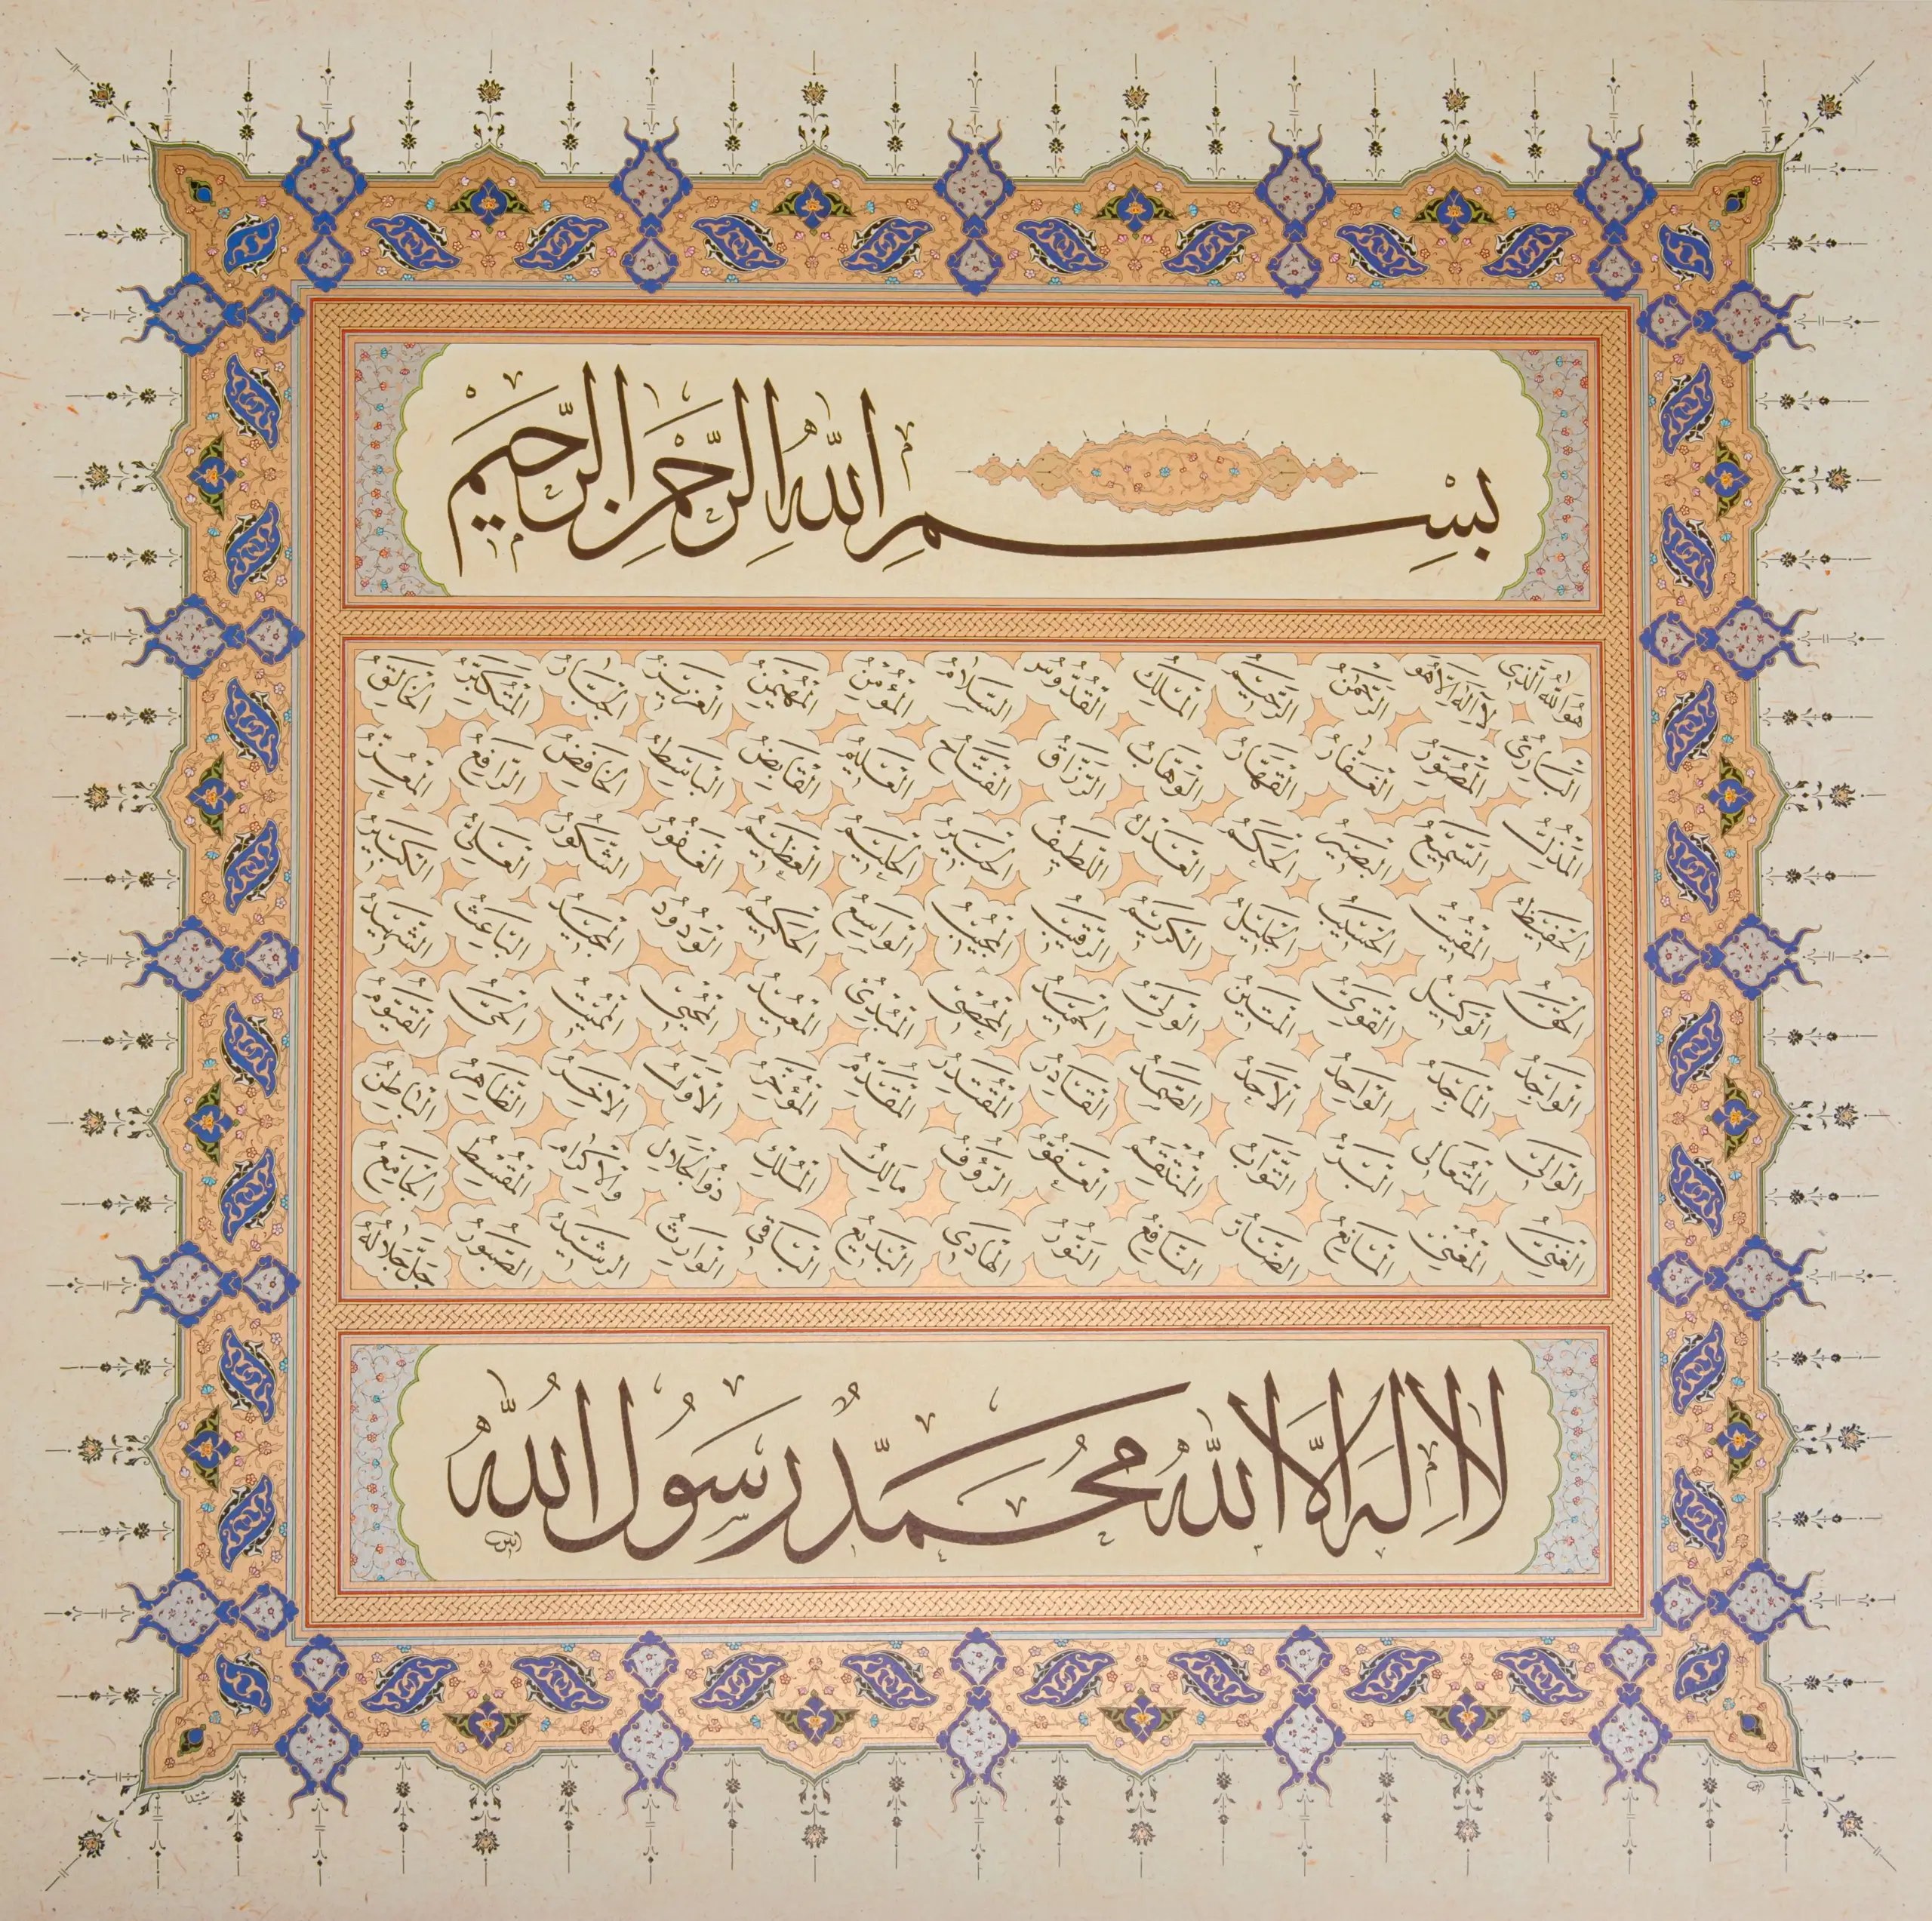 بِسْمِ اللّٰهِ الرَّحْمٰنِ الرَّحِيمِ
هُوَ اللّٰهُ الَّذِي لَا إِلٰهَ إِلَّا هُوَ الرَّحْمٰنُ الرَّحِيمُ الْمَلِكُ الْقُدُّوسُ السَّلَامُ الْمُؤْمِنُ الْمُهَيْمِنُ الْعَزِيزُ الْجَبَّارُ الْمُتَكَبِّرُ الْخَالِقُ
الْبَارِئُ الْمُصَوِّرُ الْغَفَّارُ الْقَهَّارُ الْوَهَّابُ الرَّزَّاقُ الْفَتَّاحُ الْعَلِيمُ الْقَابِضُ الْبَاسِطُ الْخَافِضُ الرَّافِعُ الْمُعِزُّ
الْمُذِلُّ السَّمِيعُ الْبَصِيرُ الْحَكَمُ الْعَدْلُ اللَّطِيفُ الْخَبِيرُ الْحَلِيمُ الْعَظِيمُ الْغَفُورُ الشَّكُورُ الْعَلِيُّ الْكَبِيرُ
الْحَفِيظُ الْمُقِيتُ الْحَسِيبُ الْجَلِيلُ الْكَرِيمُ الرَّقِيبُ الْمُجِيبُ الْوَاسِعُ الْحَكِيمُ الْوَدُودُ الْمَجِيدُ الْبَاعِثُ الشَّهِيدُ
الْحَقُّ الْوَكِيلُ الْقَوِيُّ الْمَتِينُ الْوَلِيُّ الْحَمِيدُ الْمُحْصِي الْمُبْدِئُ الْمُعِيدُ الْمُحْيِي الْمُمِيتُ الْحَيُّ الْقَيُّومُ
الْوَاجِدُ الْمَاجِدُ الْوَاحِدُ الْأَحَدُ الصَّمَدُ الْقَادِرُ الْمُقْتَدِرُ الْمُقَدِّمُ الْمُؤَخِّرُ الْأَوَّلُ الْآخِرُ الظَّاهِرُ الْبَاطِنُ
الْوَالِي الْمُتَعَالِي الْبَرُّ التَّوَّابُ الْمُنْتَقِمُ الْعَفُوُّ الرَّؤُوفُ مَالِكُ الْمُلْكِ ذُو الْجَلَالِ وَالْإِكْرَامِ الْمُقْسِطُ الْجَامِعُ
الْغَنِيُّ الْمُغْنِي الْمَانِعُ الضَّارُّ النَّافِعُ النُّورُ الْهَادِي الْبَدِيعُ الْبَاقِي الْوَارِثُ الرَّشِيدُ الصَّبُورُ جَلَّ جَلَالُهُ
لَا إِلٰهَ إِلَّا اللّٰهُ مُحَمَّدٌ رَسُولُ اللّٰهِ